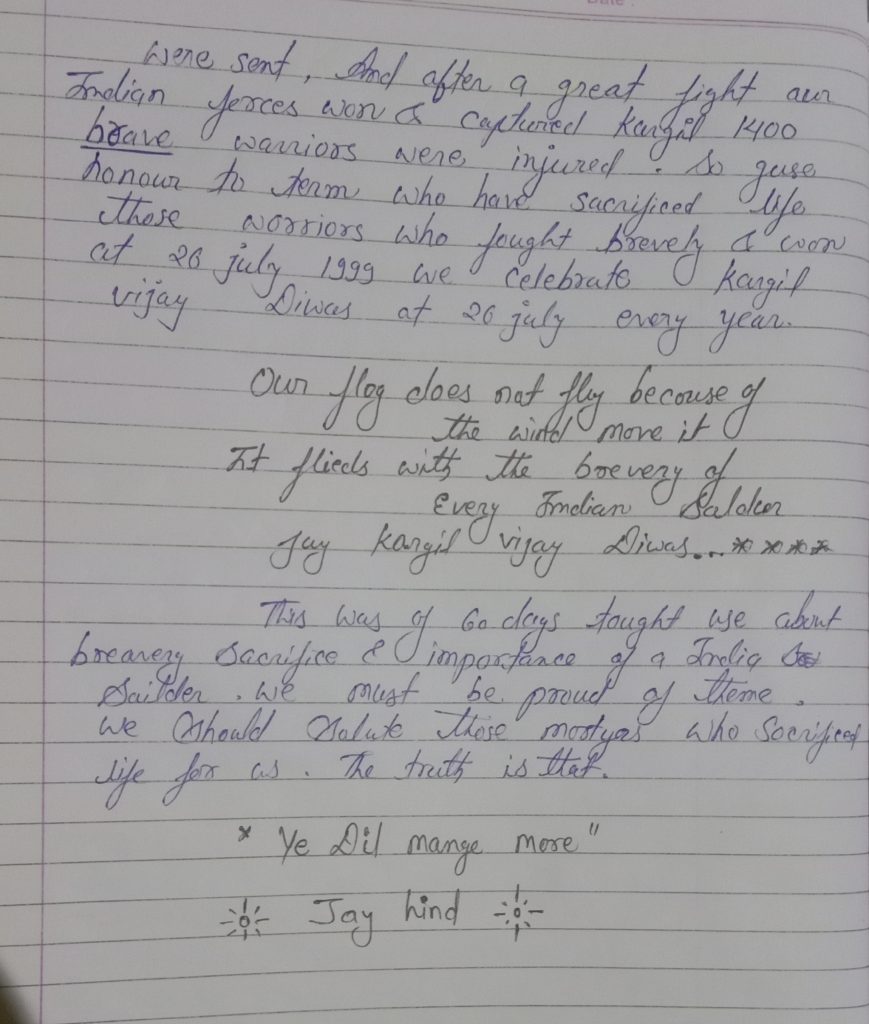 were sent, And after a great fight aur
Indian forces won & captured Kargil 1400
brave warriors were injured. So guse
honour to term who have sacrificed life
those worriors who fought brevely & won
at 26 july 1999 we celebrate Kargil
vijay Diwas at 26 july every year.
Our flog does not fly becouse of
the wind move it
It flieds with the boevery of
Every Indian Saldier
Jay Kargil vijay Diwas...****
This was of 60 days tought use about
breavery sacrifice & importance of a India
Sailder. we must be proud of theme.
we should salute those mostyas who socrificed
life for us. The truth is that.
* Ye Dil mange more"
Jay hind